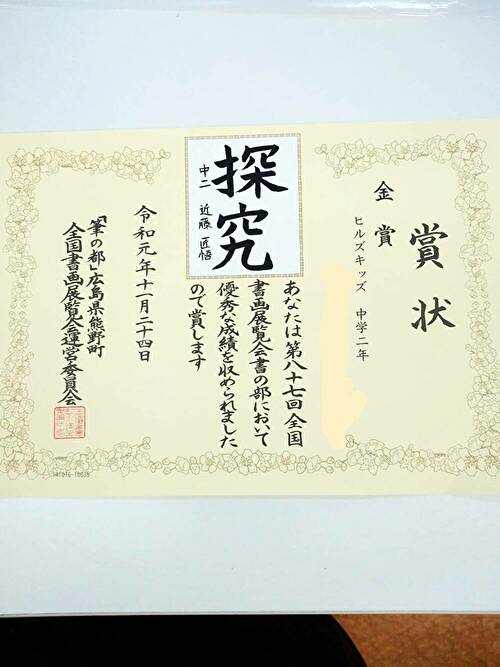 賞状
金賞
ヒルズキッズ 中学二年
探究
中二 近藤 匠悟
あなたは第八十七回全国
書画展覧会書の部において
優秀な成績を収められました
ので賞します
令和元年十一月二十四日
「筆の都」広島県熊野町
全国書画展覧会運営委員会